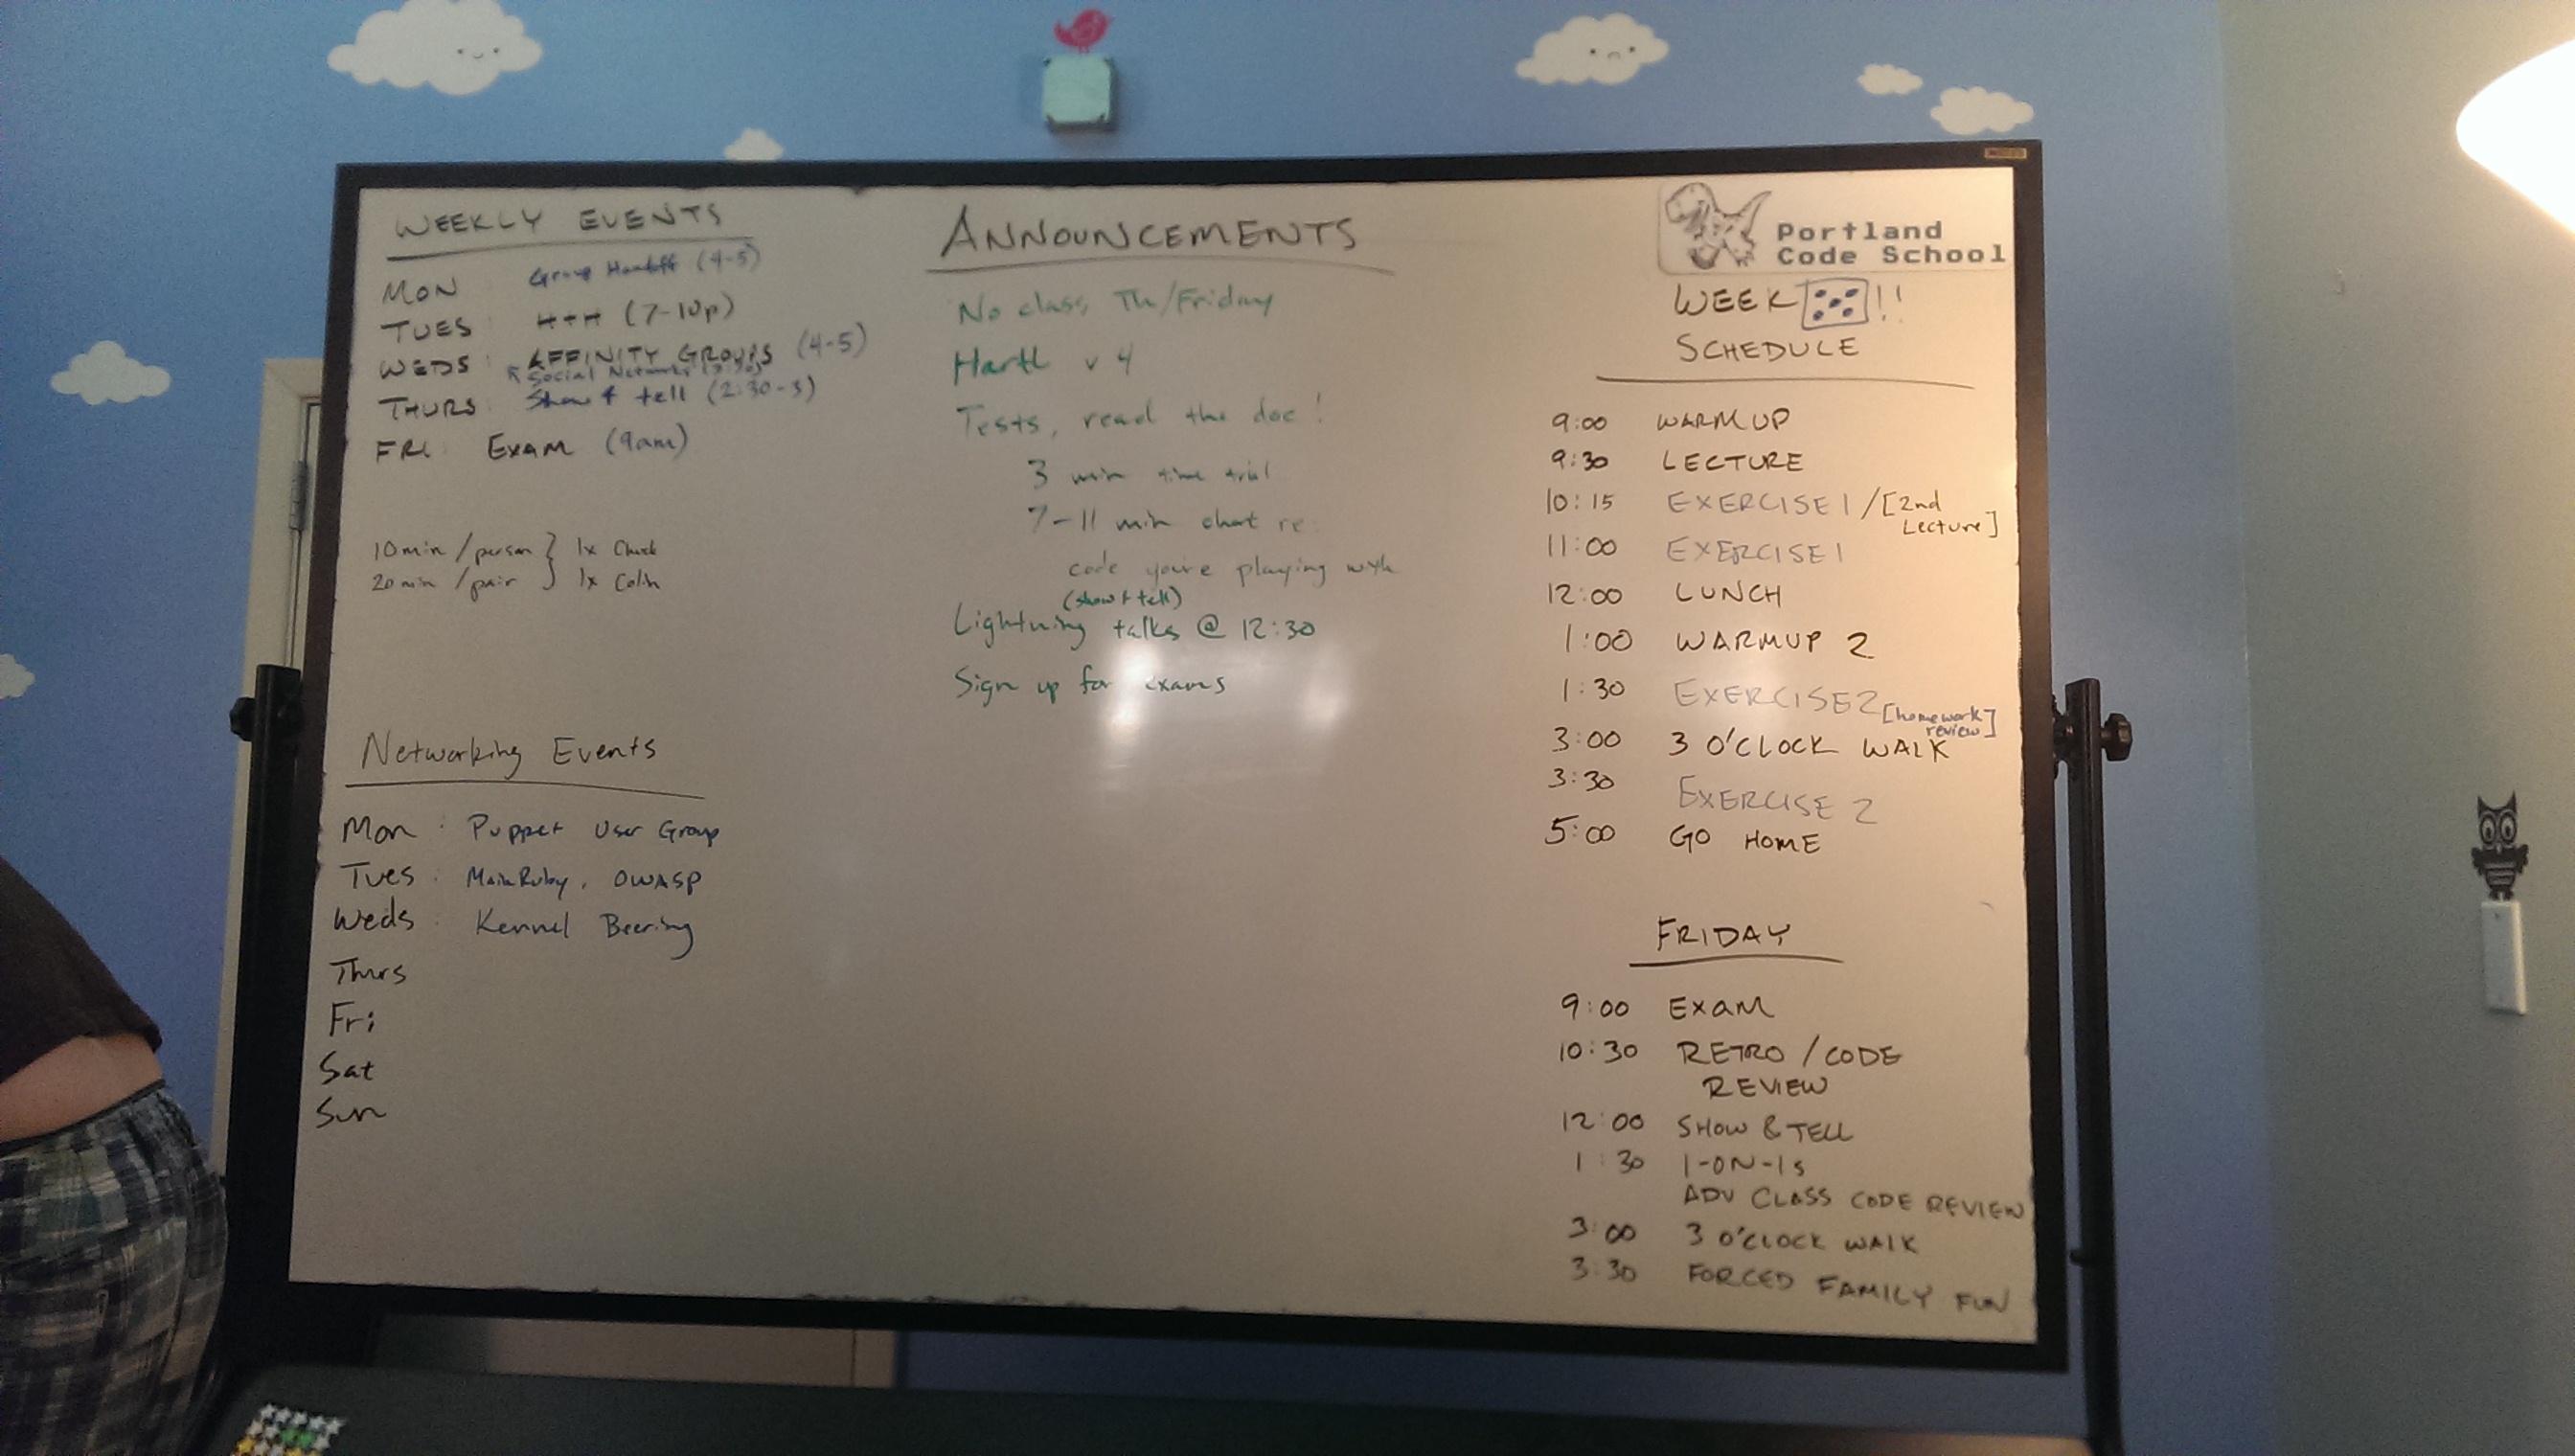 WEEKLY EVENTS
MON Group Handoff (4-5)
TUES: H+H (7-10p)
WEDS: AFFINITY GROUPS (4-5)
Social Network
THURS: Show & tell (2:30-3)
FRI: EXAM (9am)
10min/person } 1x Chuck
20min/pair } 1x Colin
Networking Events
Mon: Puppet User Group
Tues: MainRuby, OWASP
Weds: Kernel Beering
Thurs
Fri
Sat
Sun
ANNOUNCEMENTS
No class Th/Friday
Hartl v 4
Tests, read the doc!
3 min time trial
7-11 min chat re:
code you're playing with
(show & tell)
Lightning talks @ 12:30
Sign up for exams
Portland
Code School
WEEK !!
SCHEDULE
9:00 WARMUP
9:30 LECTURE
10:15 EXERCISE 1 / [2nd
Lecture]
11:00 EXERCISE 1
12:00 LUNCH
1:00 WARMUP 2
1:30 EXERCISE 2 [homework
review]
3:00 3 O'CLOCK WALK
3:30 EXERCISE 2
5:00 GO HOME
FRIDAY
9:00 EXAM
10:30 RETRO / CODE
REVIEW
12:00 SHOW & TELL
1:30 1-ON-1s
ADV CLASS CODE REVIEW
3:00 3 O'CLOCK WALK
3:30 FORCED FAMILY FUN